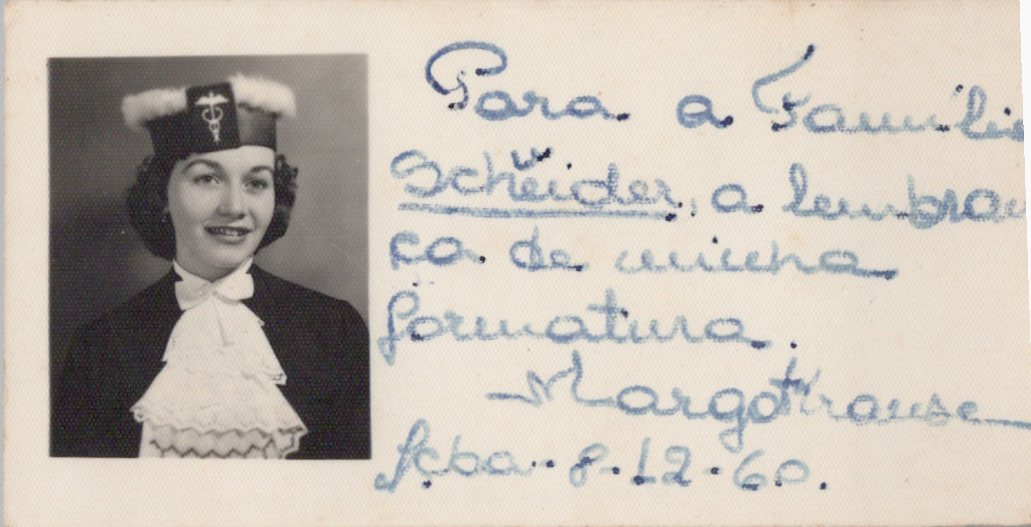 Para a Família
Schneider, a lembran
ça de minha
formatura.
Margot Krause
8-12-60.